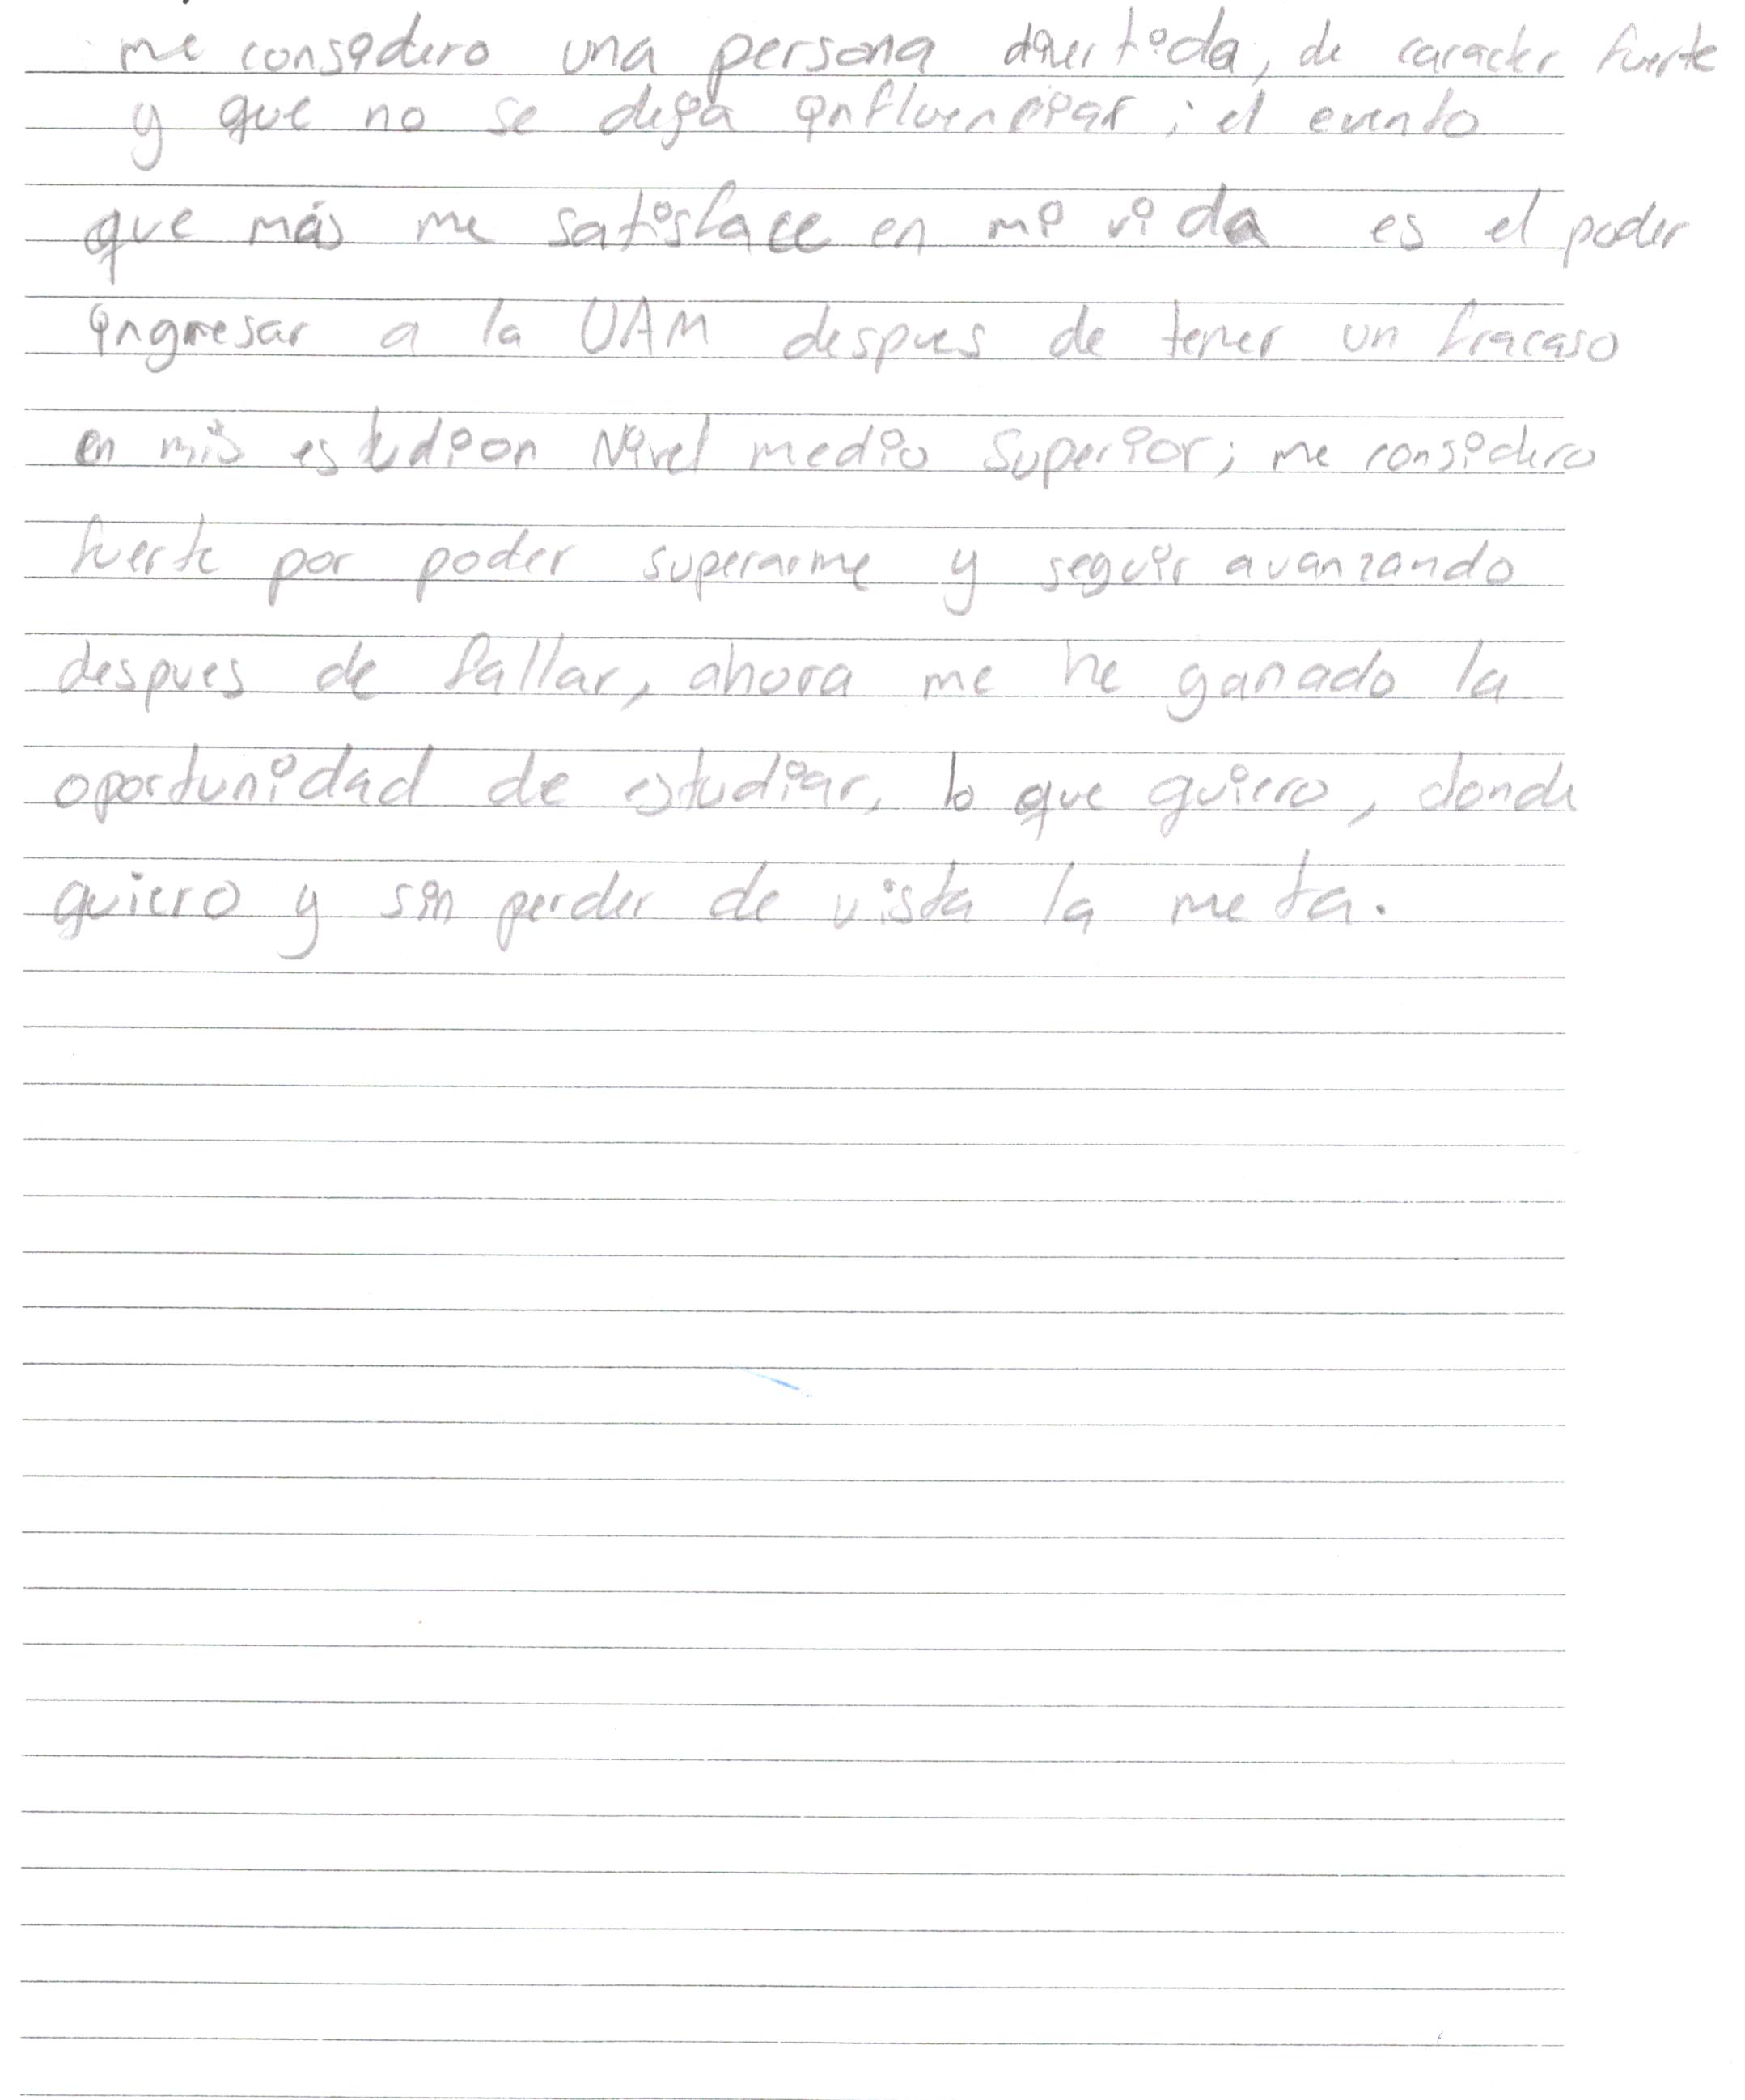 me considero una persona divertida, de caracter fuerte
y que no se deja influenciar; el evento
que más me satisface en mi vida es el poder
ingresar a la UAM despues de tener un fracaso
en mis estudion Nivel medio Superior; me considero
fuerte por poder superarme y seguir avanzando
despues de fallar, ahora me he ganado la
oportunidad de estudiar, lo que quiero, donde
quiero y sin perder de vista la meta.